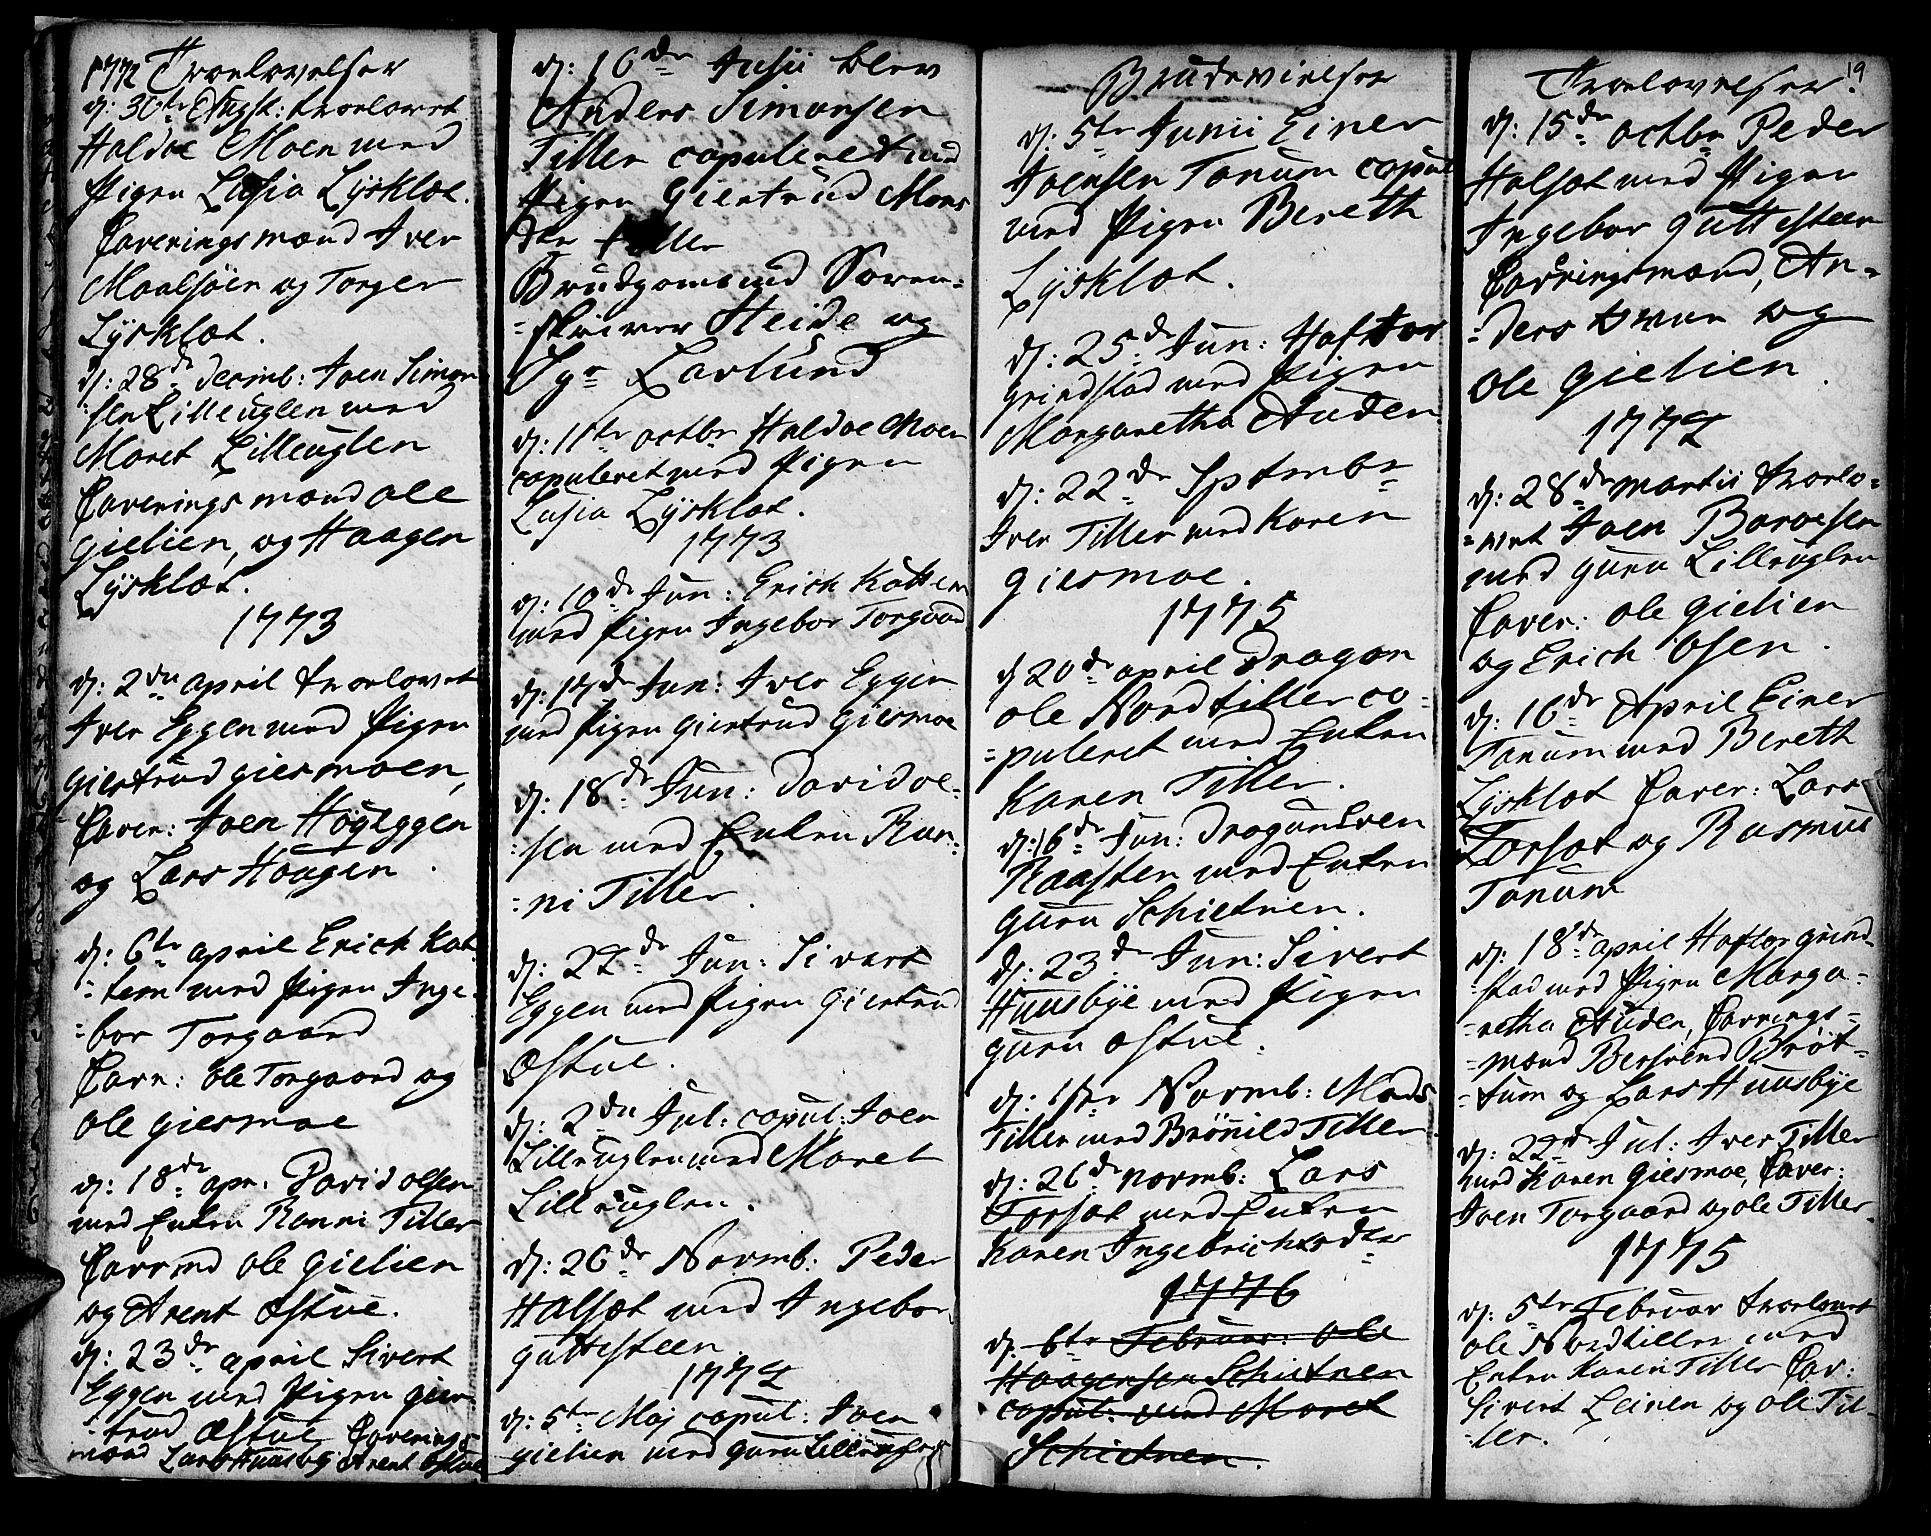 1772 Troelovelser
d: 30te Augst: troelovet
Haldoe Moen med
Pigen Lusia Lysklæt.
Caverings mænd Iver
Maalsøen og Torger
Lysklæt.
d: 28de decmb: Joen Simon
sen Lilleuglen med
Maret Lilleuglen
Caverings mænd ole
gielien, og Haagen
Lysklæt.
1773
d: 2den april troelovet
Iver Eggen med Pigen
giertrud giesmoen,
Caver: Joen Høyeggen
og Lars Haugen.
d: 6te april Erich Kat
-tem med Pigen Inge-
-bor Torgaard
Cavr: ole Torgaard og
ole giesmoe
d: 18de apr: David olsen
med Enken Ranni Tiller
Cavrmd ole gielien
og Arent Østue.
d: 23de april Sivert
Eggen med Pigen gier
-trud Østue Caverings
mænd Lars Huusby Arent Østue
d: 16de Julii blev
Anders Simonsen
Tiller copuleret med
Pigen Giertrud Mons
dtr Tiller
Brudgoms md Soren-
-skriver Heide og
Sgr Lavlund
d: 11te octbr Haldoe Moen
copuleret med Pigen
Lusia Lysklæt.
1773
d: 10de Jun: Erich Kattem
med Pigen Ingebor Torgaard
d: 17de Jun: Iver Eggen
med Pigen giertrud giesmoe
d: 18de Jun: David oe-
-sen med Enken Ran-
-ni Tiller.
d: 22de Jun: Sivert
Eggen med Pigen giertrud
Østue.
d: 2den Jul: copul: Joen
Lilleuglen med Maret
Lilleuglen.
d: 26de Novmb: Peder
Halsæt med Ingebor
guttesteen
1774
d: 5te Maj copul: Joen
gielien med guru Lilleuglen
Brudevielser
d: 5te Junii Einer
Joensen Tanum copul
med Pigen Bereth
Lysklæt.
d: 25de Jun: Haftor
grindstad med Pigen
Margaretha Auden
d: 22de Sptmbr
Iver Tiller med Karen
giesmoe.
1775
d 20de april Dragon
ole Nordtiller co-
-puleret med Enken
Karen Tiller.
d: 16de Jun: Dragun Sven
Raasten med Enken
guru Schietnen.
d: 23de Jun: Sivert
Huusbye med Pigen
guru østue.
d: 1ste Novmb: Mads
Tiller med Brønild Tiller
d: 26de novmb: Lars
Torsæt med Enken
Karen Ingebrichtsdtr
1776
d: 6te Februar: ole
Haagensen Schietnen
copul: med Maret
Schietnen.
19
Troelovelser.
d: 15de octbr Peder
Halsæt med Pigen
Ingebor guttesteen
Cavringsmænd, An-
-ders Tvan og
ole gielien.
1774
d: 28de martii troelo-
-vet Joen Baroesen
med guru Lilleuglen
Caver: ole gielien
og Erich Osen.
d: 16de April Einer
Tanum med Bereth
Lysklæt Caver: Lars
Torsæt og Rasmus
Tanum
d: 18de april Haftor grind
-stad med Pigen Marga-
-retha Auden, Cavrings-
-mænd Bersvend Brøt-
-tum og Lars Huusbye
d: 22de Jul: Iver Tiller
med Karen giesmoe, Caver:
Joen Torgaard og ole Tiller.
1775
d: 5te Februar troelovet
ole Nordtiller med
Enken Karen Tiller Cav:
Sivert Leinen og ole Til-
-ler.